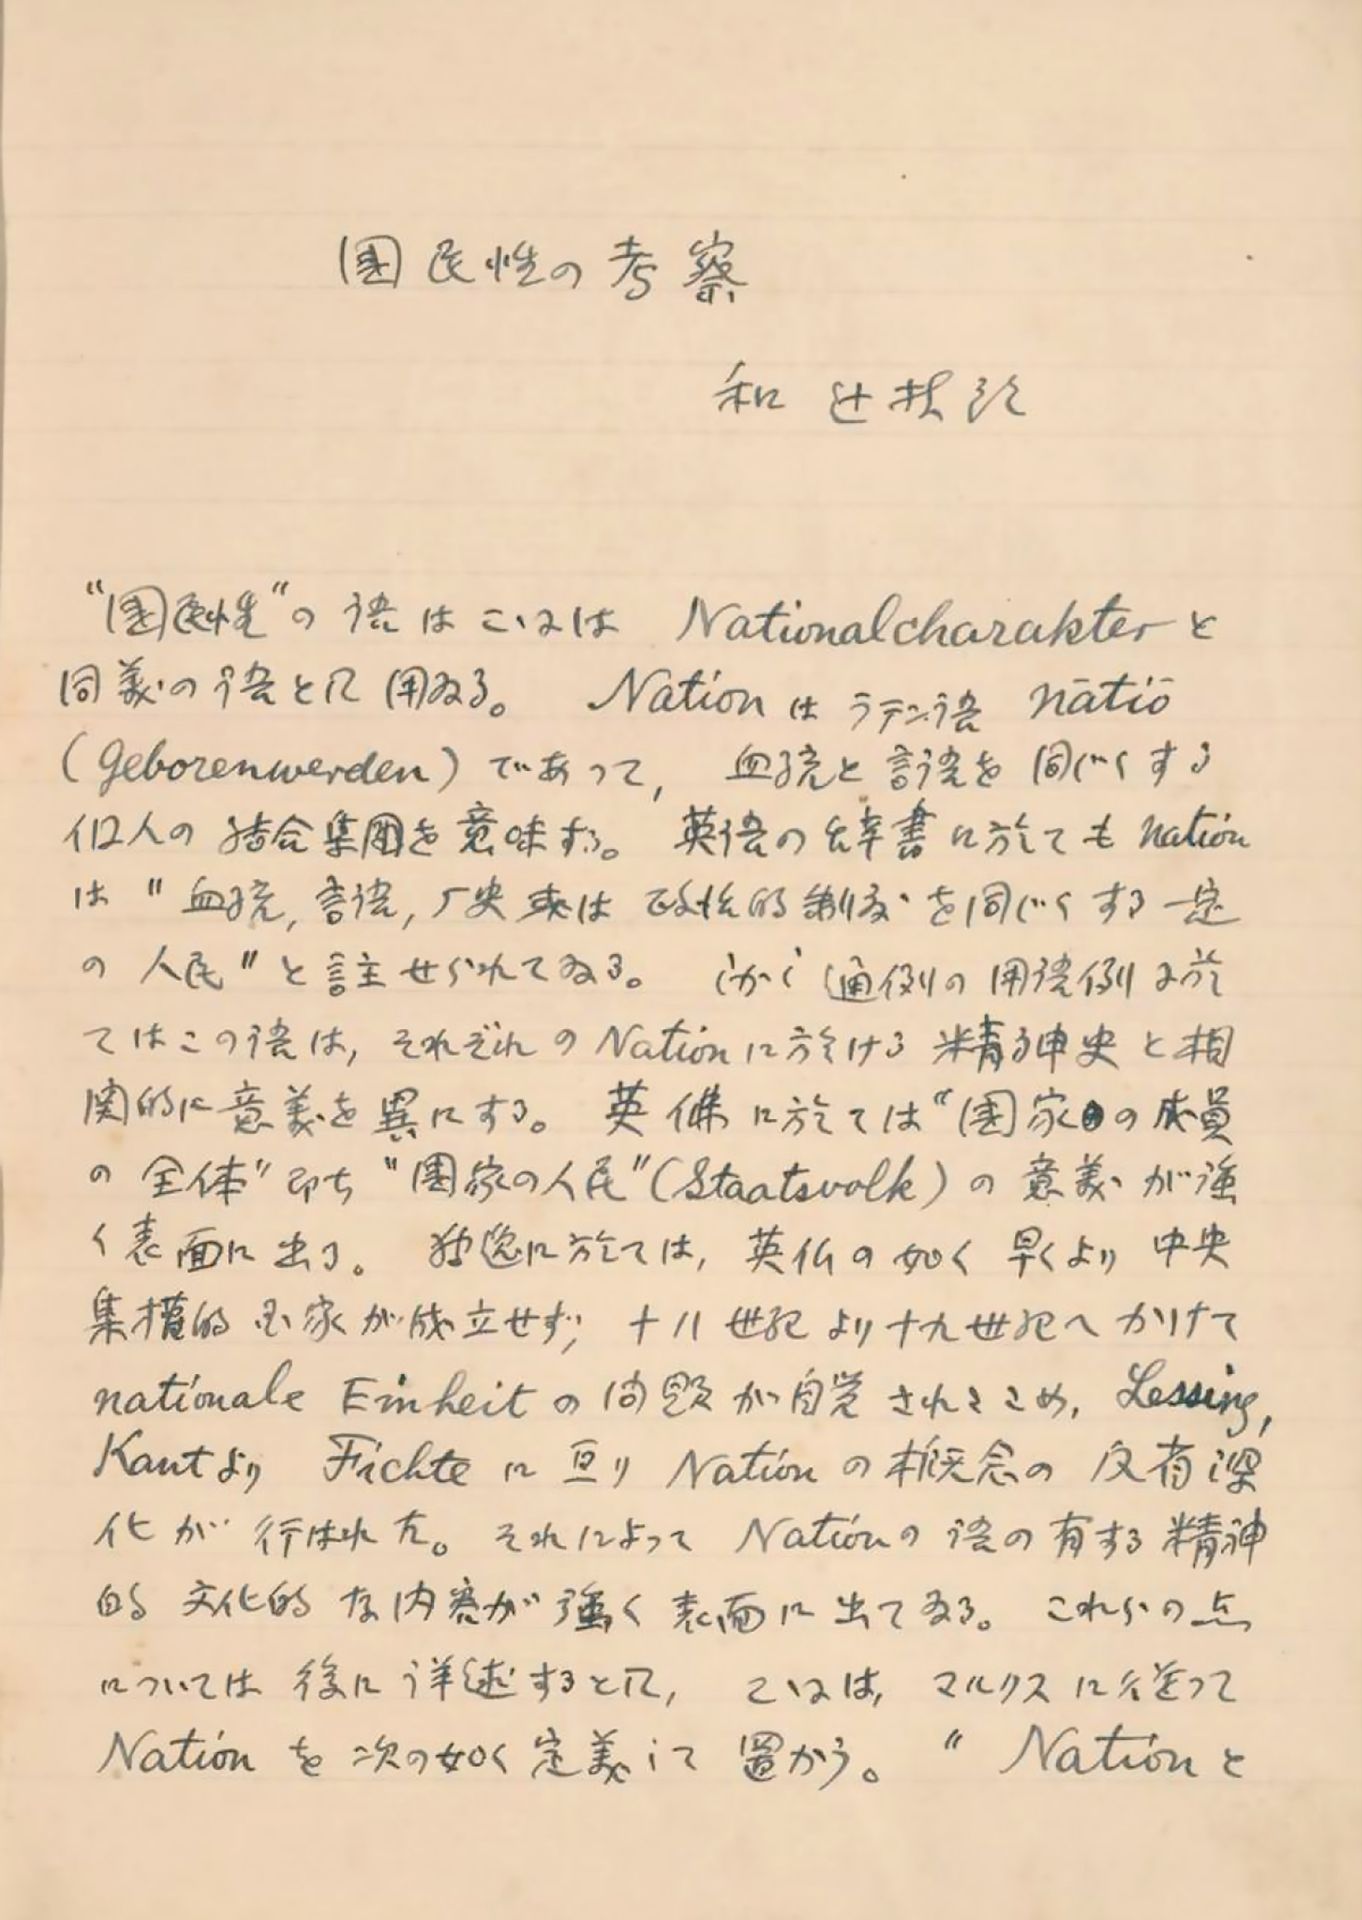 国民性の考察
和辻哲郎
“国民性“の語はこゝでは Nationalcharakter と
同義の語として用ゐる。 Nation は ラテン語 nātiō
(geborenwerden) であつて, 血統と言語を同じくする
個人の結合集団を意味する。 英語の辞書に於ても nation
は " 血統, 言語, 歴史 或は 政治的制度を同じくする一定
の人民" と註せられてゐる。 しかし通例の用語例に於
てはこの語は, それぞれの Nation に於ける精神史と相
関的に意義を異にする。 英佛に於ては“国家の成員
の全体" 即ち “国家の人民" (Staatsvolk) の意義が強
く表面に出る。 独逸に於ては, 英仏の如く早くより中央
集権的国家が成立せず, 十八世紀より十九世紀へかけて
nationale Einheit の問題が自覚されたため, Lessing,
Kant より Fichte に亘り Nation の概念の反省深
化が行はれた。 それによって Nation の語の有する精神
的文化的な内容が強く表面に出てゐる。 これらの点
については後に詳述するとして, こゝでは, マルクスに従つて
Nation を次の如く定義して置かう。 “ Nation と